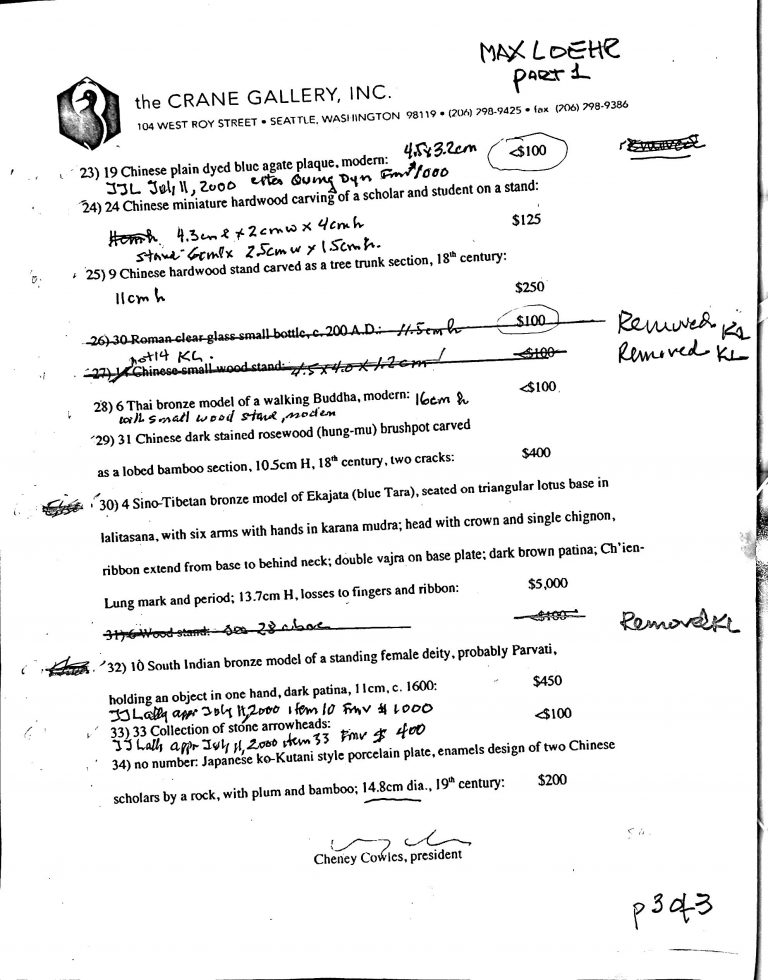 MAX LOEHR
PART 1
the CRANE GALLERY, INC.
104 WEST ROY STREET • SEATTLE, WASHINGTON 98119 • (206) 298-9425 • fax (206) 298-9386
23) 19 Chinese plain dyed blue agate plaque, modern: 4.5x3.2cm <$100 removed
JJL July 11, 2000 Qung Dyn Fmv $1000
24) 24 Chinese miniature hardwood carving of a scholar and student on a stand:
4.3cm l x 2cm w x 4cm h $125
stand - 6cm l x 2.5cm w x 1.5cm h.
25) 9 Chinese hardwood stand carved as a tree trunk section, 18th century:
11cm h $250
26) 30 Roman clear glass small bottle, c. 200 A.D.: 11.5cm h $100 Removed KL
not 14 KL.
27) 14 Chinese small wood stand: 4.5 x 4.0 x 1.2cm <$100 Removed KL
28) 6 Thai bronze model of a walking Buddha, modern: 16cm h <$100
with small wood stand, modern
29) 31 Chinese dark stained rosewood (hung-mu) brushpot carved
as a lobed bamboo section, 10.5cm H, 18th century, two cracks: $400
30) 4 Sino-Tibetan bronze model of Ekajata (blue Tara), seated on triangular lotus base in
lalitasana, with six arms with hands in karana mudra; head with crown and single chignon,
ribbon extend from base to behind neck; double vajra on base plate; dark brown patina; Ch'ien-
Lung mark and period; 13.7cm H, losses to fingers and ribbon: $5,000
31) 6 Wood stand: see 28 above <$100 Removed KL
32) 10 South Indian bronze model of a standing female deity, probably Parvati,
holding an object in one hand, dark patina, 11cm, c. 1600: $450
JJ Lally appr July 11, 2000 item 10 Fmv $1000
33) 33 Collection of stone arrowheads: <$100
JJ Lally appr July 11, 2000 item 33 Fmv $400
34) no number: Japanese ko-Kutani style porcelain plate, enamels design of two Chinese
scholars by a rock, with plum and bamboo; 14.8cm dia., 19th century: $200
Cheney Cowles, president
p 3 of 3